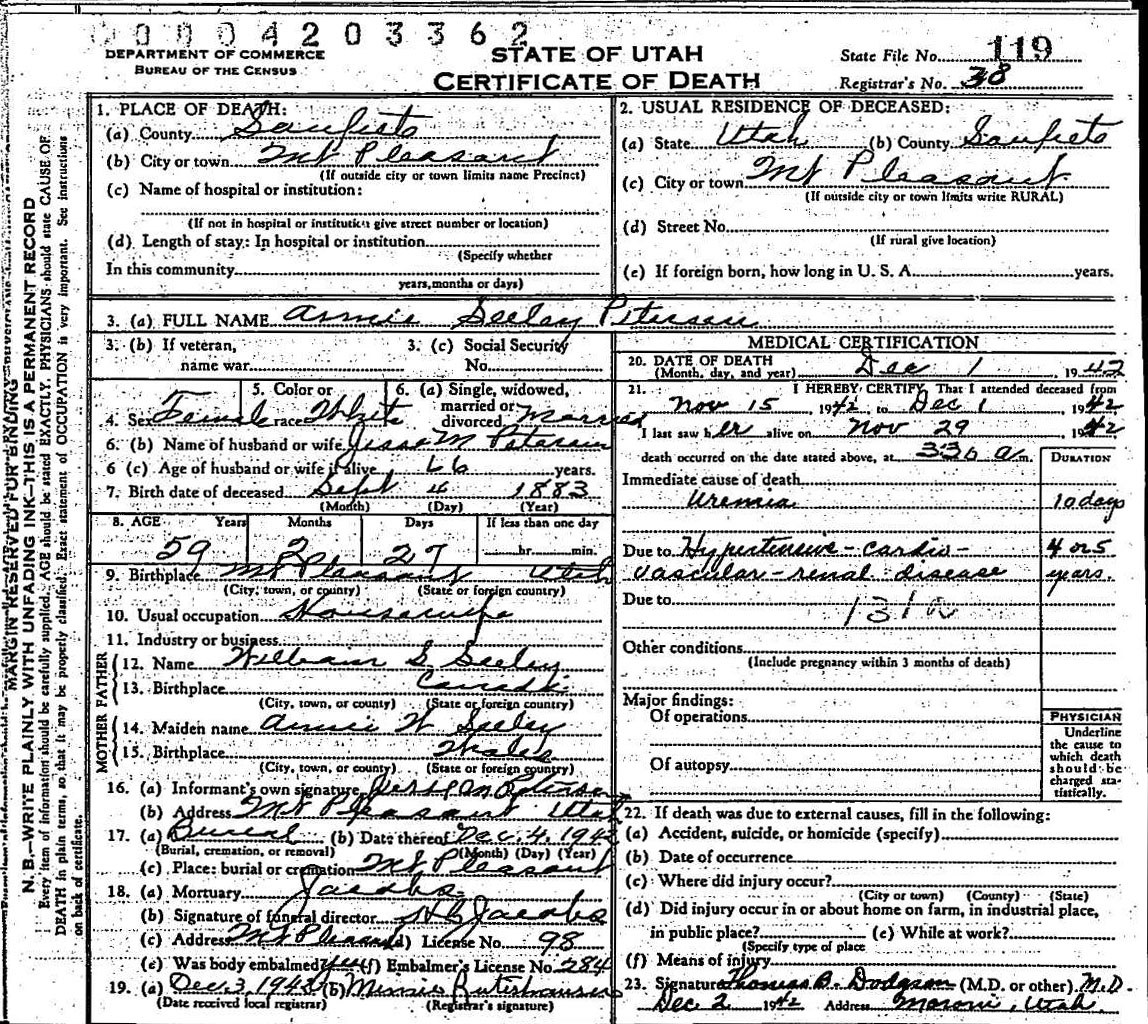 0 0 0 4 2 0 3 3 6 2
DEPARTMENT OF COMMERCE
BUREAU OF THE CENSUS
STATE OF UTAH
CERTIFICATE OF DEATH
State File No. 119
Registrar's No. 38
MARGIN RESERVED FOR BINDING
N. B.—WRITE PLAINLY WITH UNFADING INK—THIS IS A PERMANENT RECORD
Every item of information should be carefully supplied. AGE should be stated EXACTLY. PHYSICIANS should state CAUSE OF
DEATH in plain terms, so that it may be properly classified. Exact statement of OCCUPATION is very important. See instructions
on back of certificate.
1. PLACE OF DEATH:
(a) County Sanpete
(b) City or town Mt Pleasant
(If outside city or town limits name Precinct)
(c) Name of hospital or institution:
(If not in hospital or institution give street number or location)
(d) Length of stay: In hospital or institution
(Specify whether
In this community
years, months or days)
2. USUAL RESIDENCE OF DECEASED:
(a) State Utah (b) County Sanpete
(c) City or town Mt Pleasant
(If outside city or town limits write RURAL)
(d) Street No.
(If rural give location)
(e) If foreign born, how long in U. S. A. years.
3. (a) FULL NAME Annie Seeley Petersen
3. (b) If veteran,
name war
3. (c) Social Security
No.
4. Sex Female
5. Color or
race White
6. (a) Single, widowed,
married or
divorced Married
6. (b) Name of husband or wife Jesse M Petersen
6 (c) Age of husband or wife if alive, 66 years.
7. Birth date of deceased Sept 4 1883
(Month) (Day) (Year)
8. AGE Years Months Days If less than one day
59 2 27 hr. min.
9. Birthplace Mt Pleasant Utah
(City, town, or county) (State or foreign country)
10. Usual occupation Housewife
11. Industry or business
FATHER
12. Name William S Seeley
13. Birthplace Canada
(City, town, or county) (State or foreign country)
MOTHER
14. Maiden name Annie W Seeley
15. Birthplace Wales
(City, town, or county) (State or foreign country)
16. (a) Informant's own signature Petersen
(b) Address Mt Pleasant Utah
17. (a) Burial (b) Date thereof Dec. 4, 1942
(Burial, cremation, or removal) (Month) (Day) (Year)
(c) Place: burial or cremation Mt Pleasant
18. (a) Mortuary Jacobs
(b) Signature of funeral director Jacobs
(c) Address Mt Pleasant (d) License No. 98
(e) Was body embalmed yes (f) Embalmer's License No. 284
19. (a) Dec. 3, 1942 (b) Minnie
(Date received local registrar) (Registrar's signature)
MEDICAL CERTIFICATION
20. DATE OF DEATH
(Month, day, and year) Dec 1 1942
21. I HEREBY CERTIFY, That I attended deceased from
Nov 15 1942 to Dec 1 1942
I last saw her alive on Nov 29 1942
death occurred on the date stated above, at 330 a m.
DURATION
Immediate cause of death
Uremia 10 days
Due to Hypertensive-cardio- 4 or 5
vascular-renal disease years.
Due to
131
Other conditions
(Include pregnancy within 3 months of death)
Major findings:
Of operations
Of autopsy
PHYSICIAN
Underline
the cause to
which death
should be
charged sta-
tistically.
22. If death was due to external causes, fill in the following:
(a) Accident, suicide, or homicide (specify)
(b) Date of occurrence
(c) Where did injury occur?
(City or town) (County) (State)
(d) Did injury occur in or about home on farm, in industrial place,
in public place? (e) While at work?
(Specify type of place
(f) Means of injury
23. Signature Thomas B. Dodgson (M.D. or other) M.D.
Dec 2 1942 Address Moroni, Utah